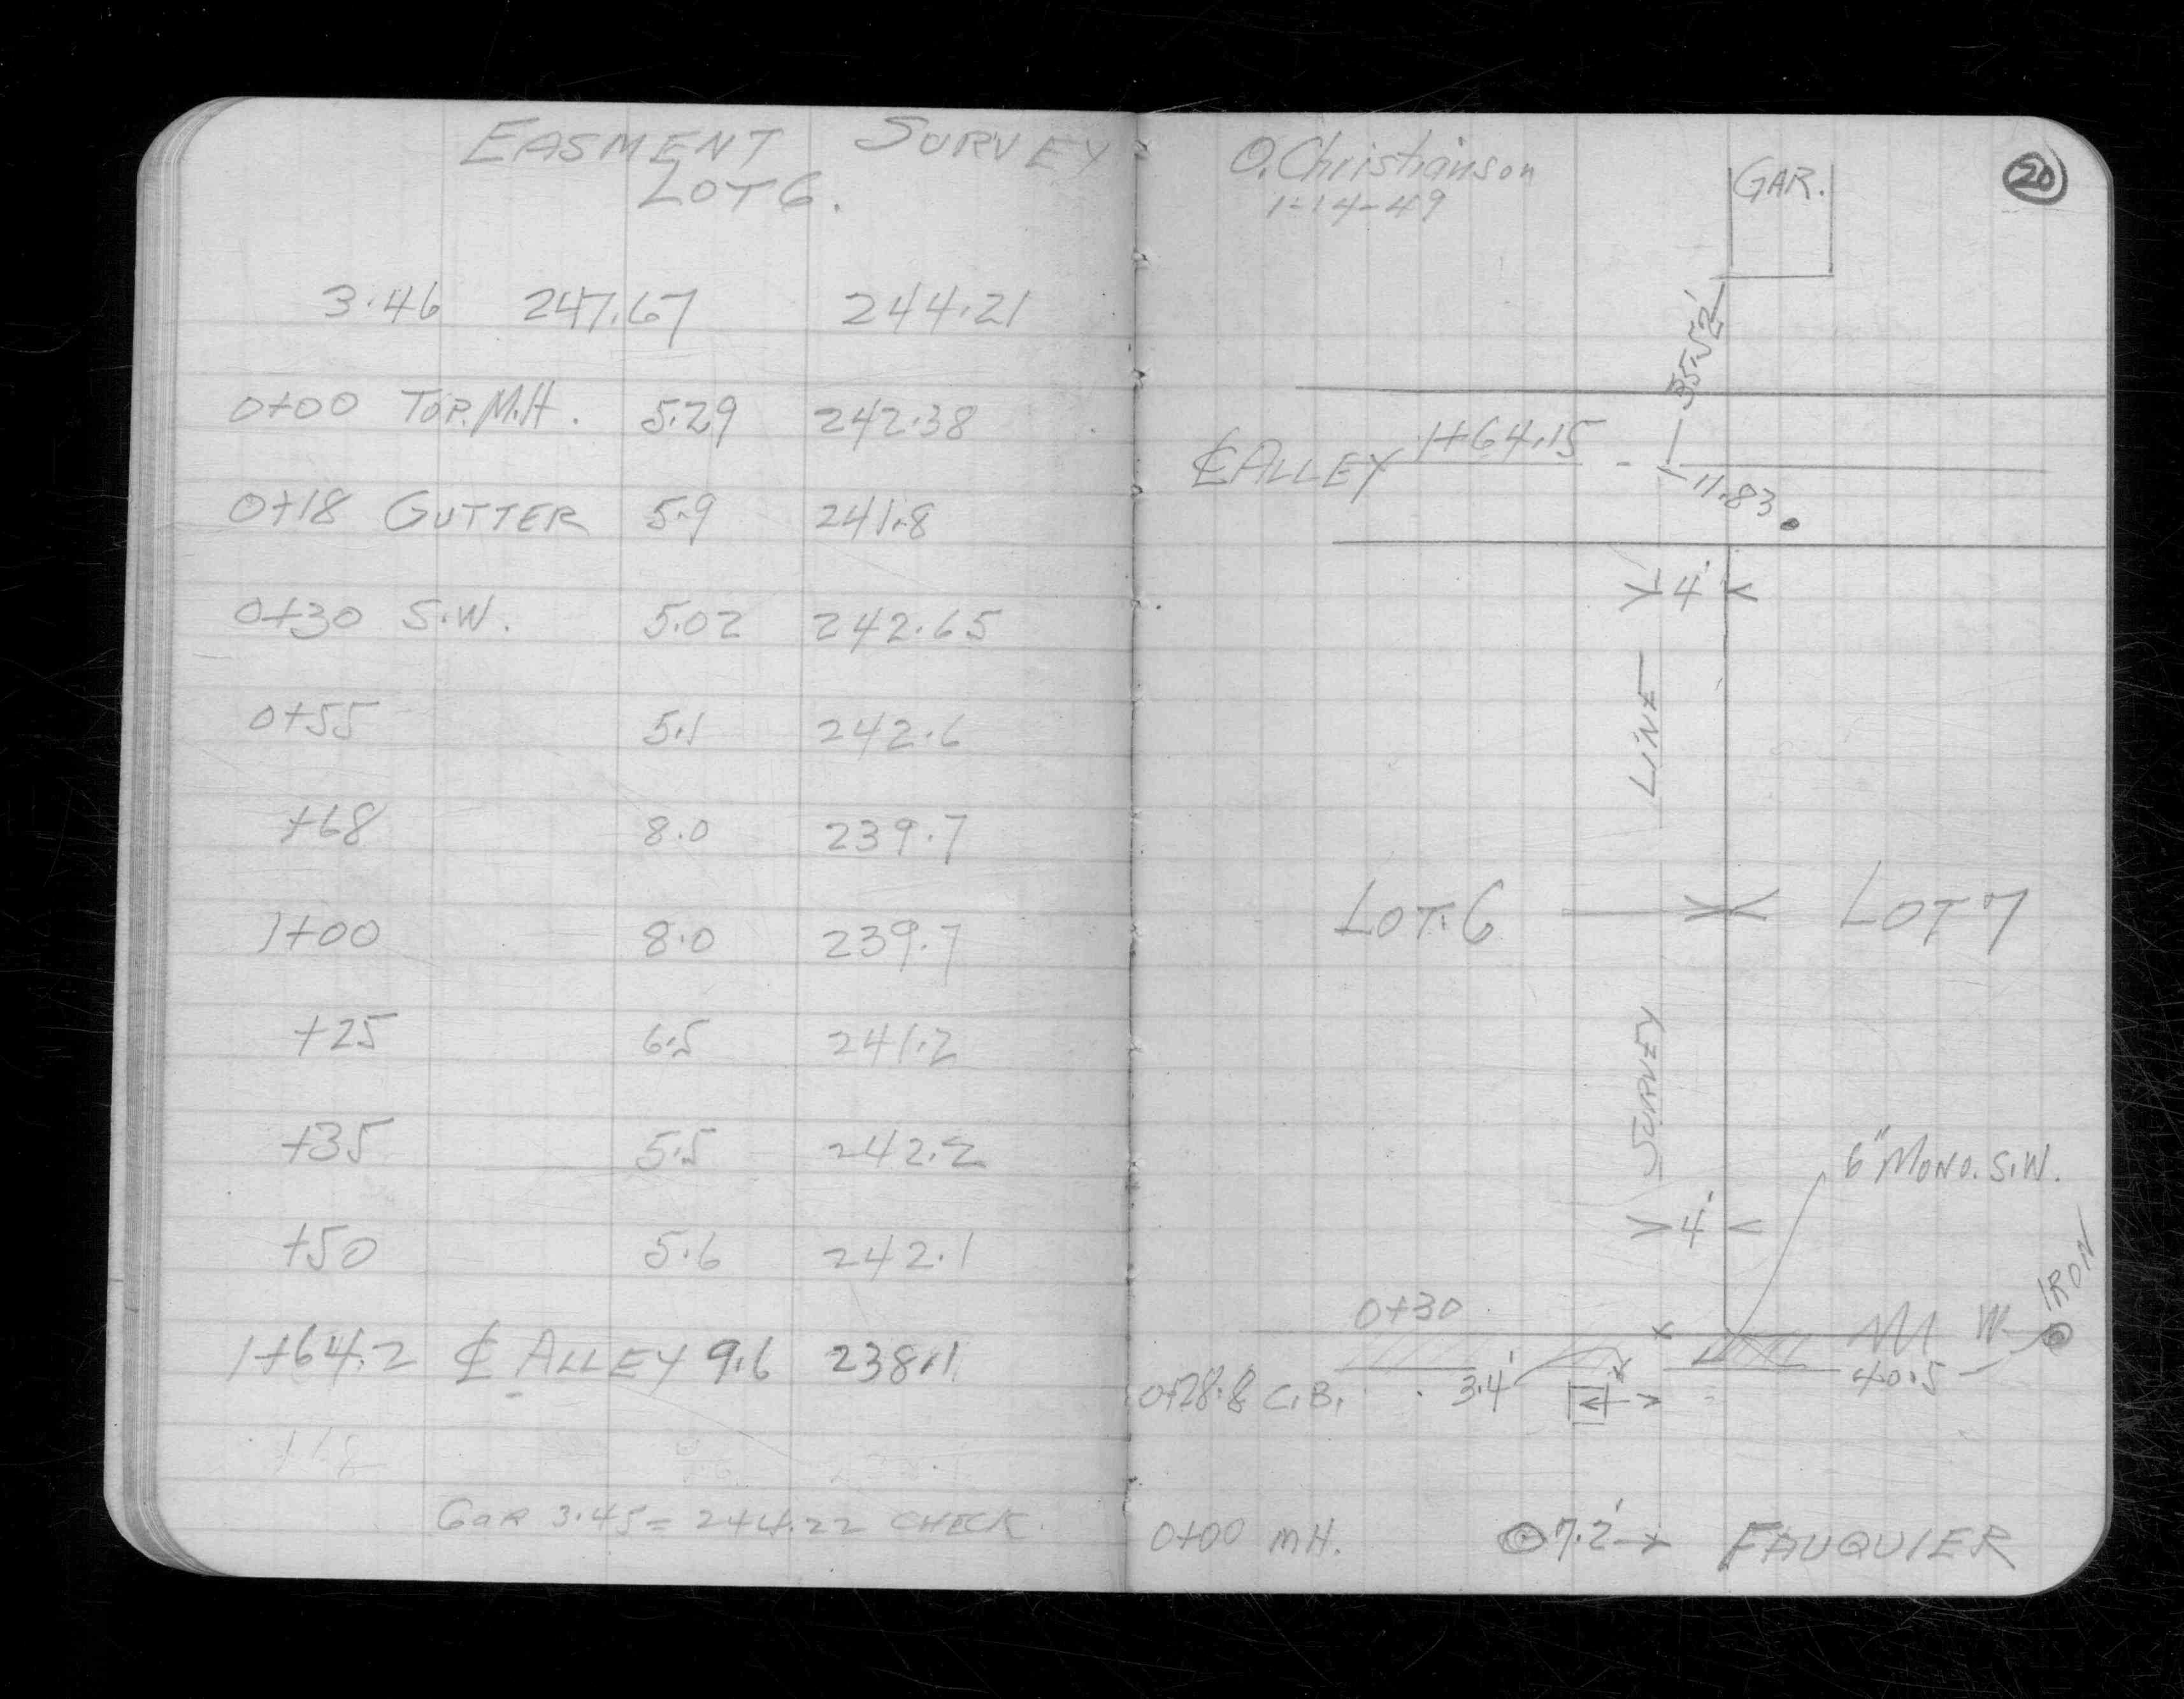 EASMENT SURVEY
LOT 6.
3.46 247.67 244.21
0+00 TOP. M.H. 5.29 242.38
0+18 GUTTER 5.9 241.8
0+30 S.W. 5.02 242.65
0+55 5.1 242.6
+68 8.0 239.7
1+00 8.0 239.7
+25 6.5 241.2
+35 5.5 242.2
+50 5.6 242.1
1+64.2 ℄ ALLEY 9.6 238.1
GAR 3.45 = 244.22 CHECK.
O. Christianson
1-14-49
GAR.
20
35.52'
℄ ALLEY 1+64.15
11.83
4'
LINE
LOT. 6
LOT 7
SURVEY
6" MONO. S.W.
4'
IRON
0+30
W.
40.5
0+28.8 C.B. 3.4'
0+00 MH. 7.2' FAUQUIER